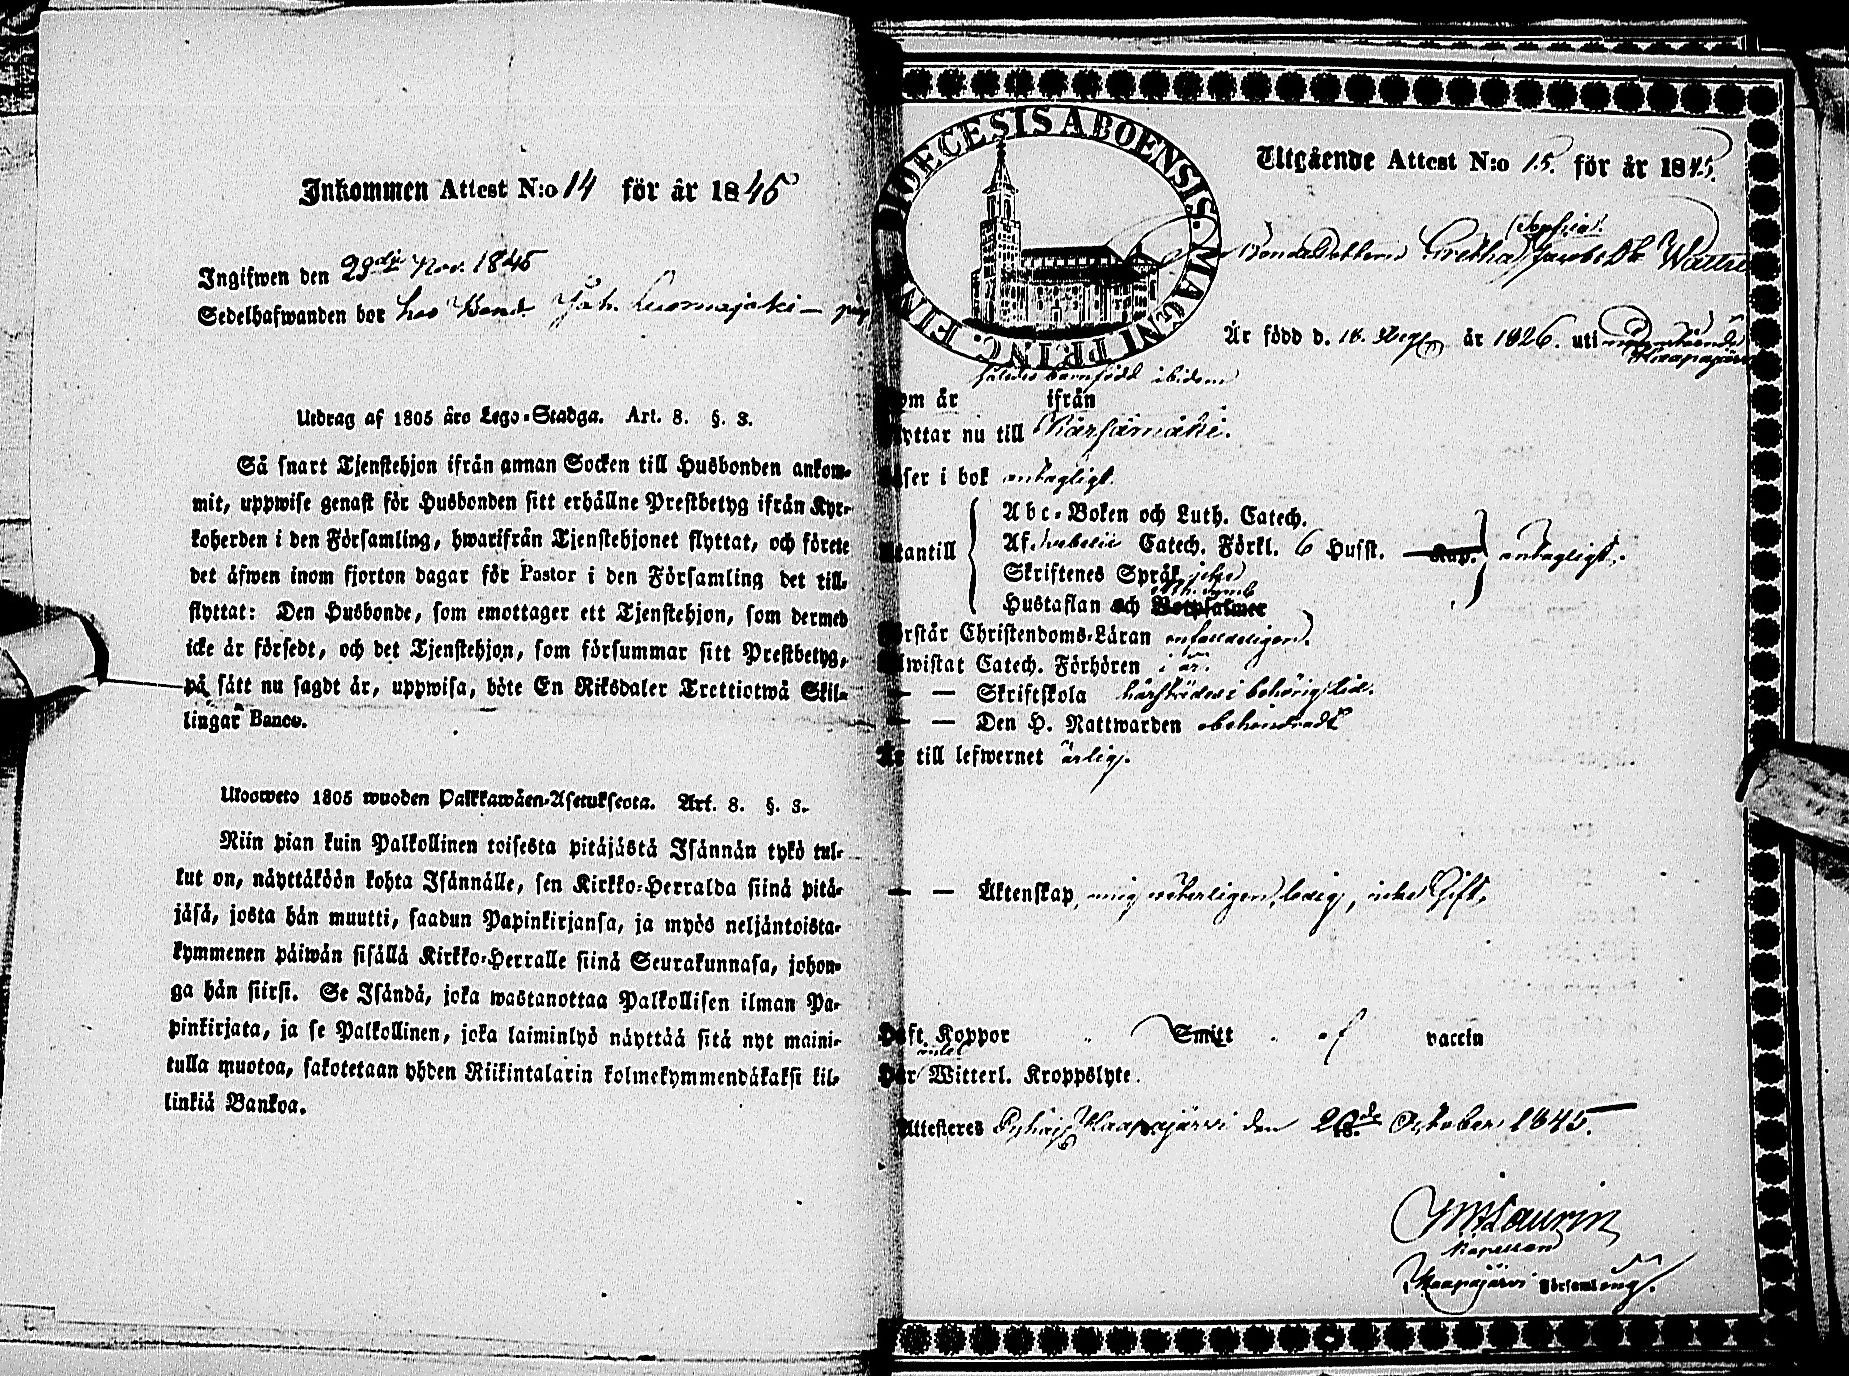 Inkommen Attest N:o 14 för år 1845
Ingifwen den 29de Nov. 1845
Sedelhafwanden bor hos Bond. Joh. Luomajoki –
Utdrag af 1805 års Lego-Stadga. Art. 8. §. 3.
Så snart Tjenstehjon ifrån annan Socken till Husbonden ankom-
mit, uppwise genast för Husbonden sitt erhållne Prestbetyg ifrån Kyr-
koherden i den Församling, hwarifrån Tjenstehjonet flyttat, och förete
det äfwen inom fjorton dagar för Pastor i den Församling det till-
flyttat: Den Husbonde, som emottager ett Tjenstehjon, som dermed
icke är försedt, och det Tjenstehjon, som försummar sitt Prestbetyg,
på sätt nu sagdt är, uppwisa, böte En Riksdaler Trettiotwå Skil-
lingar Banco.
Ulosweto 1805 wuoden Palkkawäen-Asetuksesta. Art. 8. §. 3.
Niin pian kuin Palkollinen toisesta pitäjästä Isännän tykö tul-
kut on, näyttäköön kohta Isännälle, sen Kirkko-Herralda siinä pitä-
jäsä, josta hän muutti, saadun Papinkirjansa, ja myös neljäntoista-
kymmenen päiwän sisällä Kirkko-Herralle siinä Seurakunnasa, johon-
ga hän siirsi. Se Isändä, joka wastanottaa Palkollisen ilman Pa-
pinkirjata, ja se Palkollinen, joka laiminlyö näyttää sitä nyt maini-
tulla muotoa, sakotetaan yhden Riikintalarin kolmekymmendäkaksi kil-
linkiä Bankoa.
DIOECESIS ABOENSIS. MAGNI PRINC. FIN
Utgående Attest N:o 15. för år 1845.
Sophia
Bonda Dottern Gretha Jacobs Dr
Är född d. 18. år 1826. uti
Haapajärvi
barnfödd ibidem
om är ifrån
yttar nu till Kärsämäki.
äser i bok antagligt.
Abc-Boken och Luth. Catech.
tantill Af Catech. Förkl. 6 Hufst. Kap. antagligt.
Skriftenes Språk
Ath. symb
Hustaflan och Botpsalmer
rstår Christendoms-Läran
wistat Catech. Förhören i år.
— — Skriftskola härstädes i behörig tid.
— — Den H. Nattwarden obehindradt
Är till lefwernet ärlig.
— — Äktenskap, mig weterligen, ledig, icke Gift.
Haft Koppor Smitt af vaccin
intet
Har Witterl. Kroppslyte.
Attesteres Haapajärvi den 28de October 1845.
Laurin
Kapellan
Haapajärvi Församling.